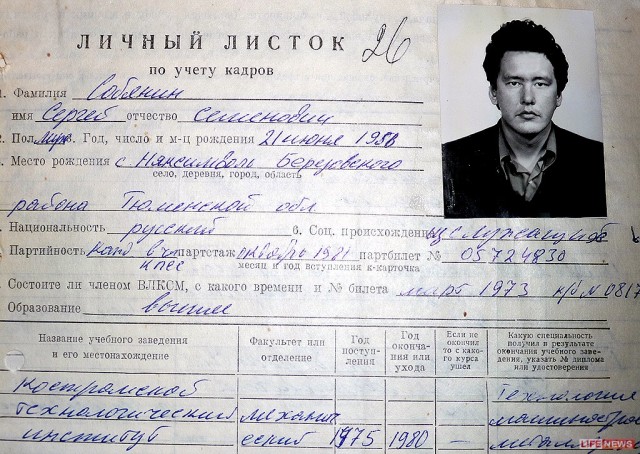 ЛИЧНЫЙ ЛИСТОК 26
по учету кадров
1. Фамилия Собянин
имя Сергей отчество Семенович
2. Пол Муж 3. Год, число и м-ц рождения 21 июня 1958
Место рождения с Няксимволь Березовского
село, деревня, город, область
района Тюменской обл
Национальность русский 6. Соц. происхождение из служащих
Партийность канд в чл партстаж октябрь 1981 партбилет № 05724830
кпсс месяц и год вступления к-карточка
Состоите ли членом ВЛКСМ, с какого времени и № билета март 1973 к/б № 0817
Образование высшее
Название учебного заведения и его местонахождение
Факультет или отделение
Год поступления
Год окончания или ухода
Если не окончил то с какого курса ушел
Какую специальность получил в результате окончания учебного заведения, указать № диплома или удостоверения
Костромской Технология
технологический механич машиностро
институт еский 1975 1980 —
LIFE NEWS